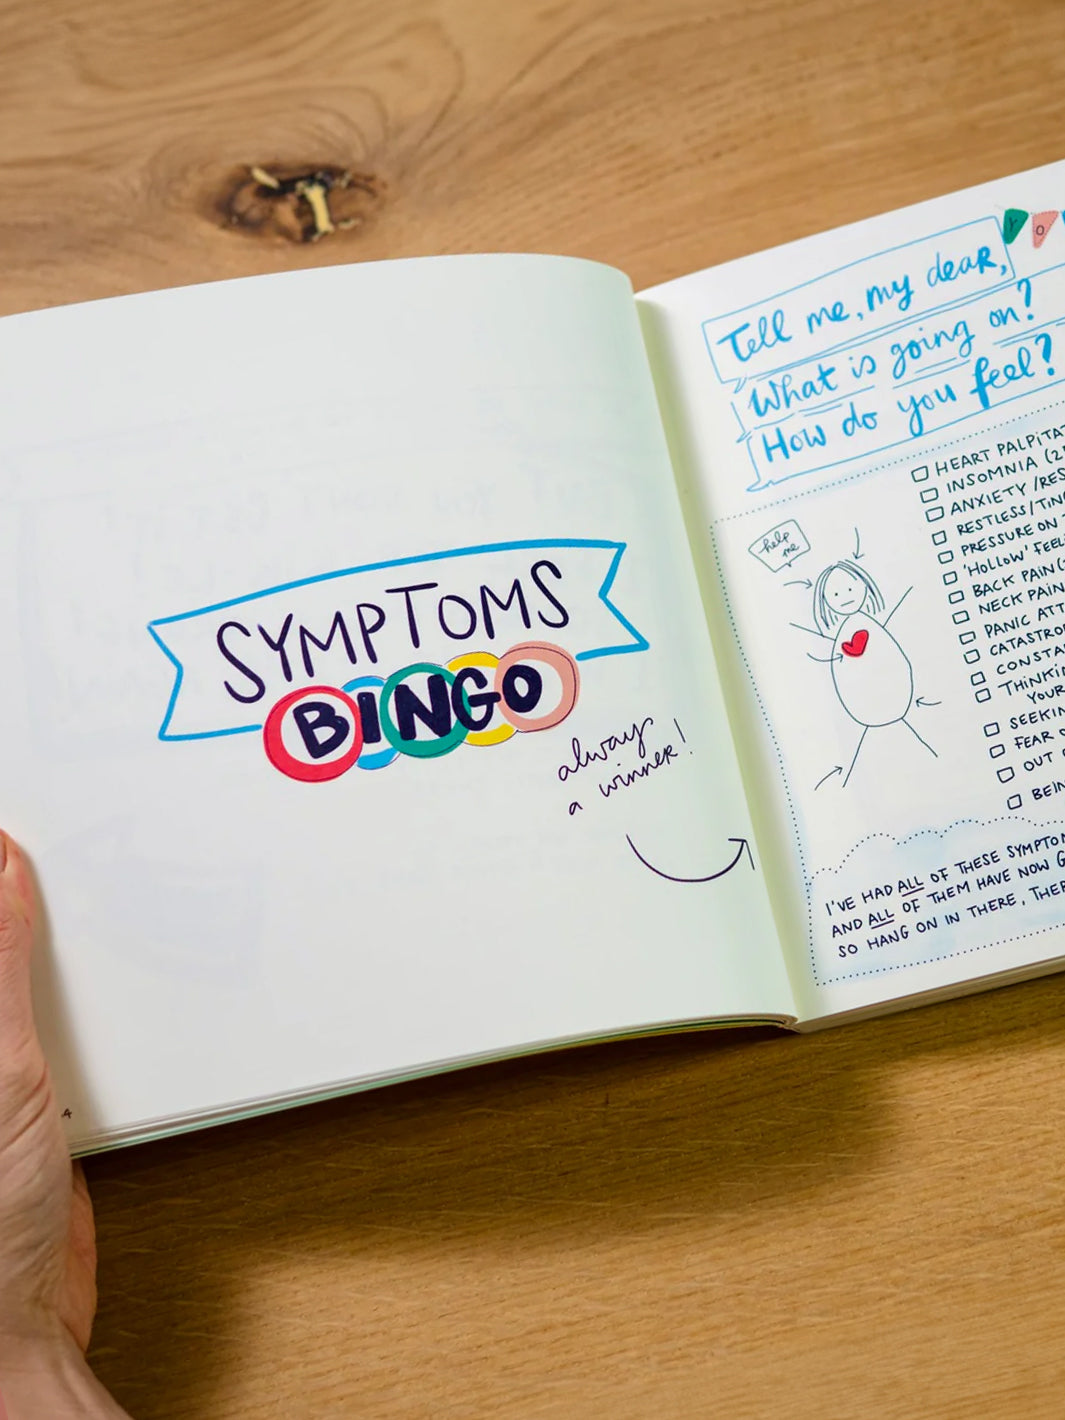 SYMPTOMS
BINGO
always
a winner!
YO
Tell me, my dear,
What is going on?
How do you feel?
help
me
HEART PALPITAT
INSOMNIA (2
ANXIETY /RES
RESTLESS/TIN
PRESSURE ON
'HOLLOW' FEEL
BACK PAIN
NECK PAIN
PANIC ATT
CATASTRO
CONSTA
THINKIN
YOUR
SEEKIN
FEAR
OUT
BEIN
I'VE HAD ALL OF THESE SYMPTO
AND ALL OF THEM HAVE NOW G
SO HANG ON IN THERE, THER